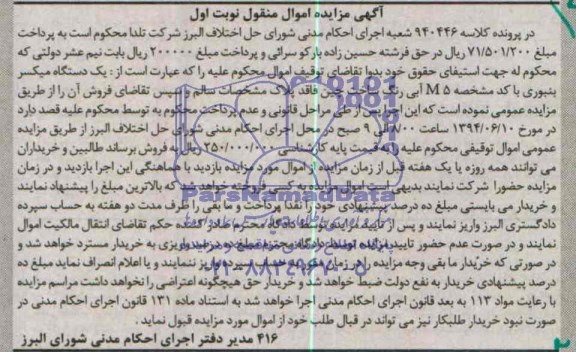 آگهی مزایده اموال منقول نوبت اول
در پرونده کلاسه ۹۴۰۴۴۶ شعبه اجرای احکام مدنی شورای حل اختلاف البرز شرکت تلدا محکوم است به پرداخت
مبلغ ۷۱/۵۰۱/۲۰۰ ریال در حق فرشته حسین زاده بارکو سرائی و پرداخت مبلغ ۲۰۰۰۰۰ ریال بابت نیم عشر دولتی که
محکوم له جهت استیفای حقوق خود بدوا تقاضای توقیف اموال محکوم علیه را که عبارت است از : یک دستگاه میکسر
بنبوری با کد مشخصه M ۵ آبی رنگ ساخت چین فاقد پلاک مشخصات سالم سپس تقاضای فروش آن را از طریق
مزایده عمومی نموده است که این اجرا پس از طی مراحل قانونی و عدم پرداخت محکوم به توسط محکوم علیه قصد دارد
در مورخ ۱۳۹۴/۰۶/۱۰ ساعت ۸/۰۰ الی ۹ صبح در محل اجرای احکام مدنی شورای حل اختلاف البرز از طریق مزایده
عمومی اموال توقیفی محکوم علیه را به قیمت پایه کارشناسی ۲۵۰/۰۰۰/۰۰۰ ریال به فروش برساند طالبین و خریداران
می توانند همه روزه یا یک هفته قبل از زمان مزایده از اموال مورد مزایده بازدید با هماهنگی این اجرا بازدید و در زمان
مزایده حضورا شرکت نمایند بدیهی است اموال مزایده به کسی فروخته خواهد شد که بالاترین مبلغ را پیشنهاد نمایند
و خریدار می بایستی مبلغ ده درصد پیشنهادی خود را نقدا پرداخت و ما بقی را ظرف مدت دو هفته به حساب سپرده
دادگستری البرز واریز نمایند و پس از تایید مزایده توسط دادگاه محترم صادر کننده حکم تقاضای انتقال مالکیت اموال
نمایند و در صورت عدم حضور تایید مزایده توسط دادگاه محترم مبلغ ده درصد واریزی به خریدار مسترد خواهد شد و
در صورتی که خریدار ما بقی وجه مزایده را در زمان مقرر به حساب سپرده واریز ننمایند و یا اعلام انصراف نماید مبلغ ده
درصد پیشنهادی خریدار به نفع دولت ضبط خواهد شد و خریدار حق هیچگونه اعتراضی را نخواهد داشت مراسم مزایده
با رعایت مواد ۱۱۳ به بعد قانون اجرای احکام مدنی اجرا خواهد شد به استناد ماده ۱۳۱ قانون اجرای احکام مدنی در
صورت نبود خریدار طلبکار نیز می تواند در قبال طلب خود از اموال مورد مزایده قبول نماید .
۴۱۶ مدیر دفتر اجرای احکام مدنی شورای البرز
ParsNamadData
۰۲۱-۸۸۳۴۹۶۷۰-۵